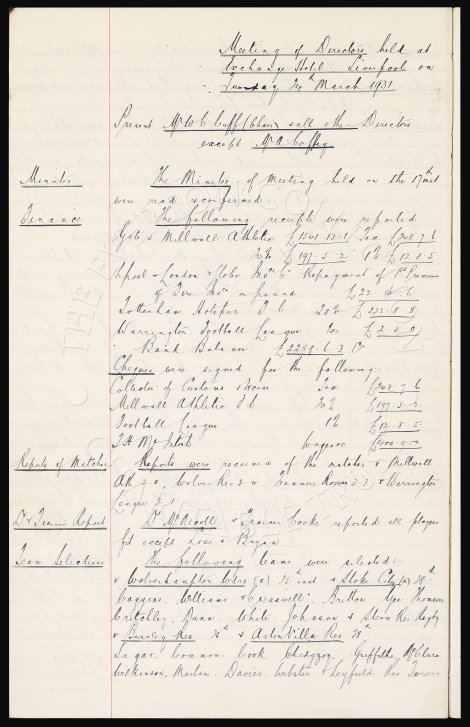 Meeting of Directors held at
Exchange Hotel Liverpool on
Tuesday 24th March 1931
Present Mr W C Cuff (Chair) & all other Directors
except Mr A Coffey
Minutes
The Minutes of Meeting held on the 17th inst
were read & confirmed.
Finance
The following receipts were reported
Gate v Millwall Athletic Tax £348.7.6
20% £197.5.2 1% £12.8.5
Lpool & London & Globe Repayment of Premium
of Fire
Tottenham Hotspur F.C. 20% £232.8.8
Warrington Football League £2.5.0
Bank Balance £2289.6.3 Cr
Cheques were signed for the following:-
Collector of Customs & Excise Tax £348.7.6
Millwall Athletic F C 20% £197.5.2
Football League 1% £12.8.5
Wages £400.0.0
Reports of Matches
Reports were received of the matches v Millwall
Ath 2.0, Wolves Res 2.4 Tranmere Rovers 3.3 & Warrington
League 2.1
Dr & Trainer Report
& Trainer Cooke reported all players
fit except &
Team Selections
The following teams were selected:-
v Wolverhampton Wdrs (a) 25th inst & Stoke City (a) 28th
Coggins, Williams & Cresswell; Britton, Gee, Thomson
Critchley, Dunn, White, Johnson & Stein Res. Rigby
v Burnley Res 25th & Aston Villa Res 28th
Sagar, Common, Cook, Chedgzoy, Griffiths, McClure
Wilkinson, Martin, Davies, Webster & Leyfield Res Towers